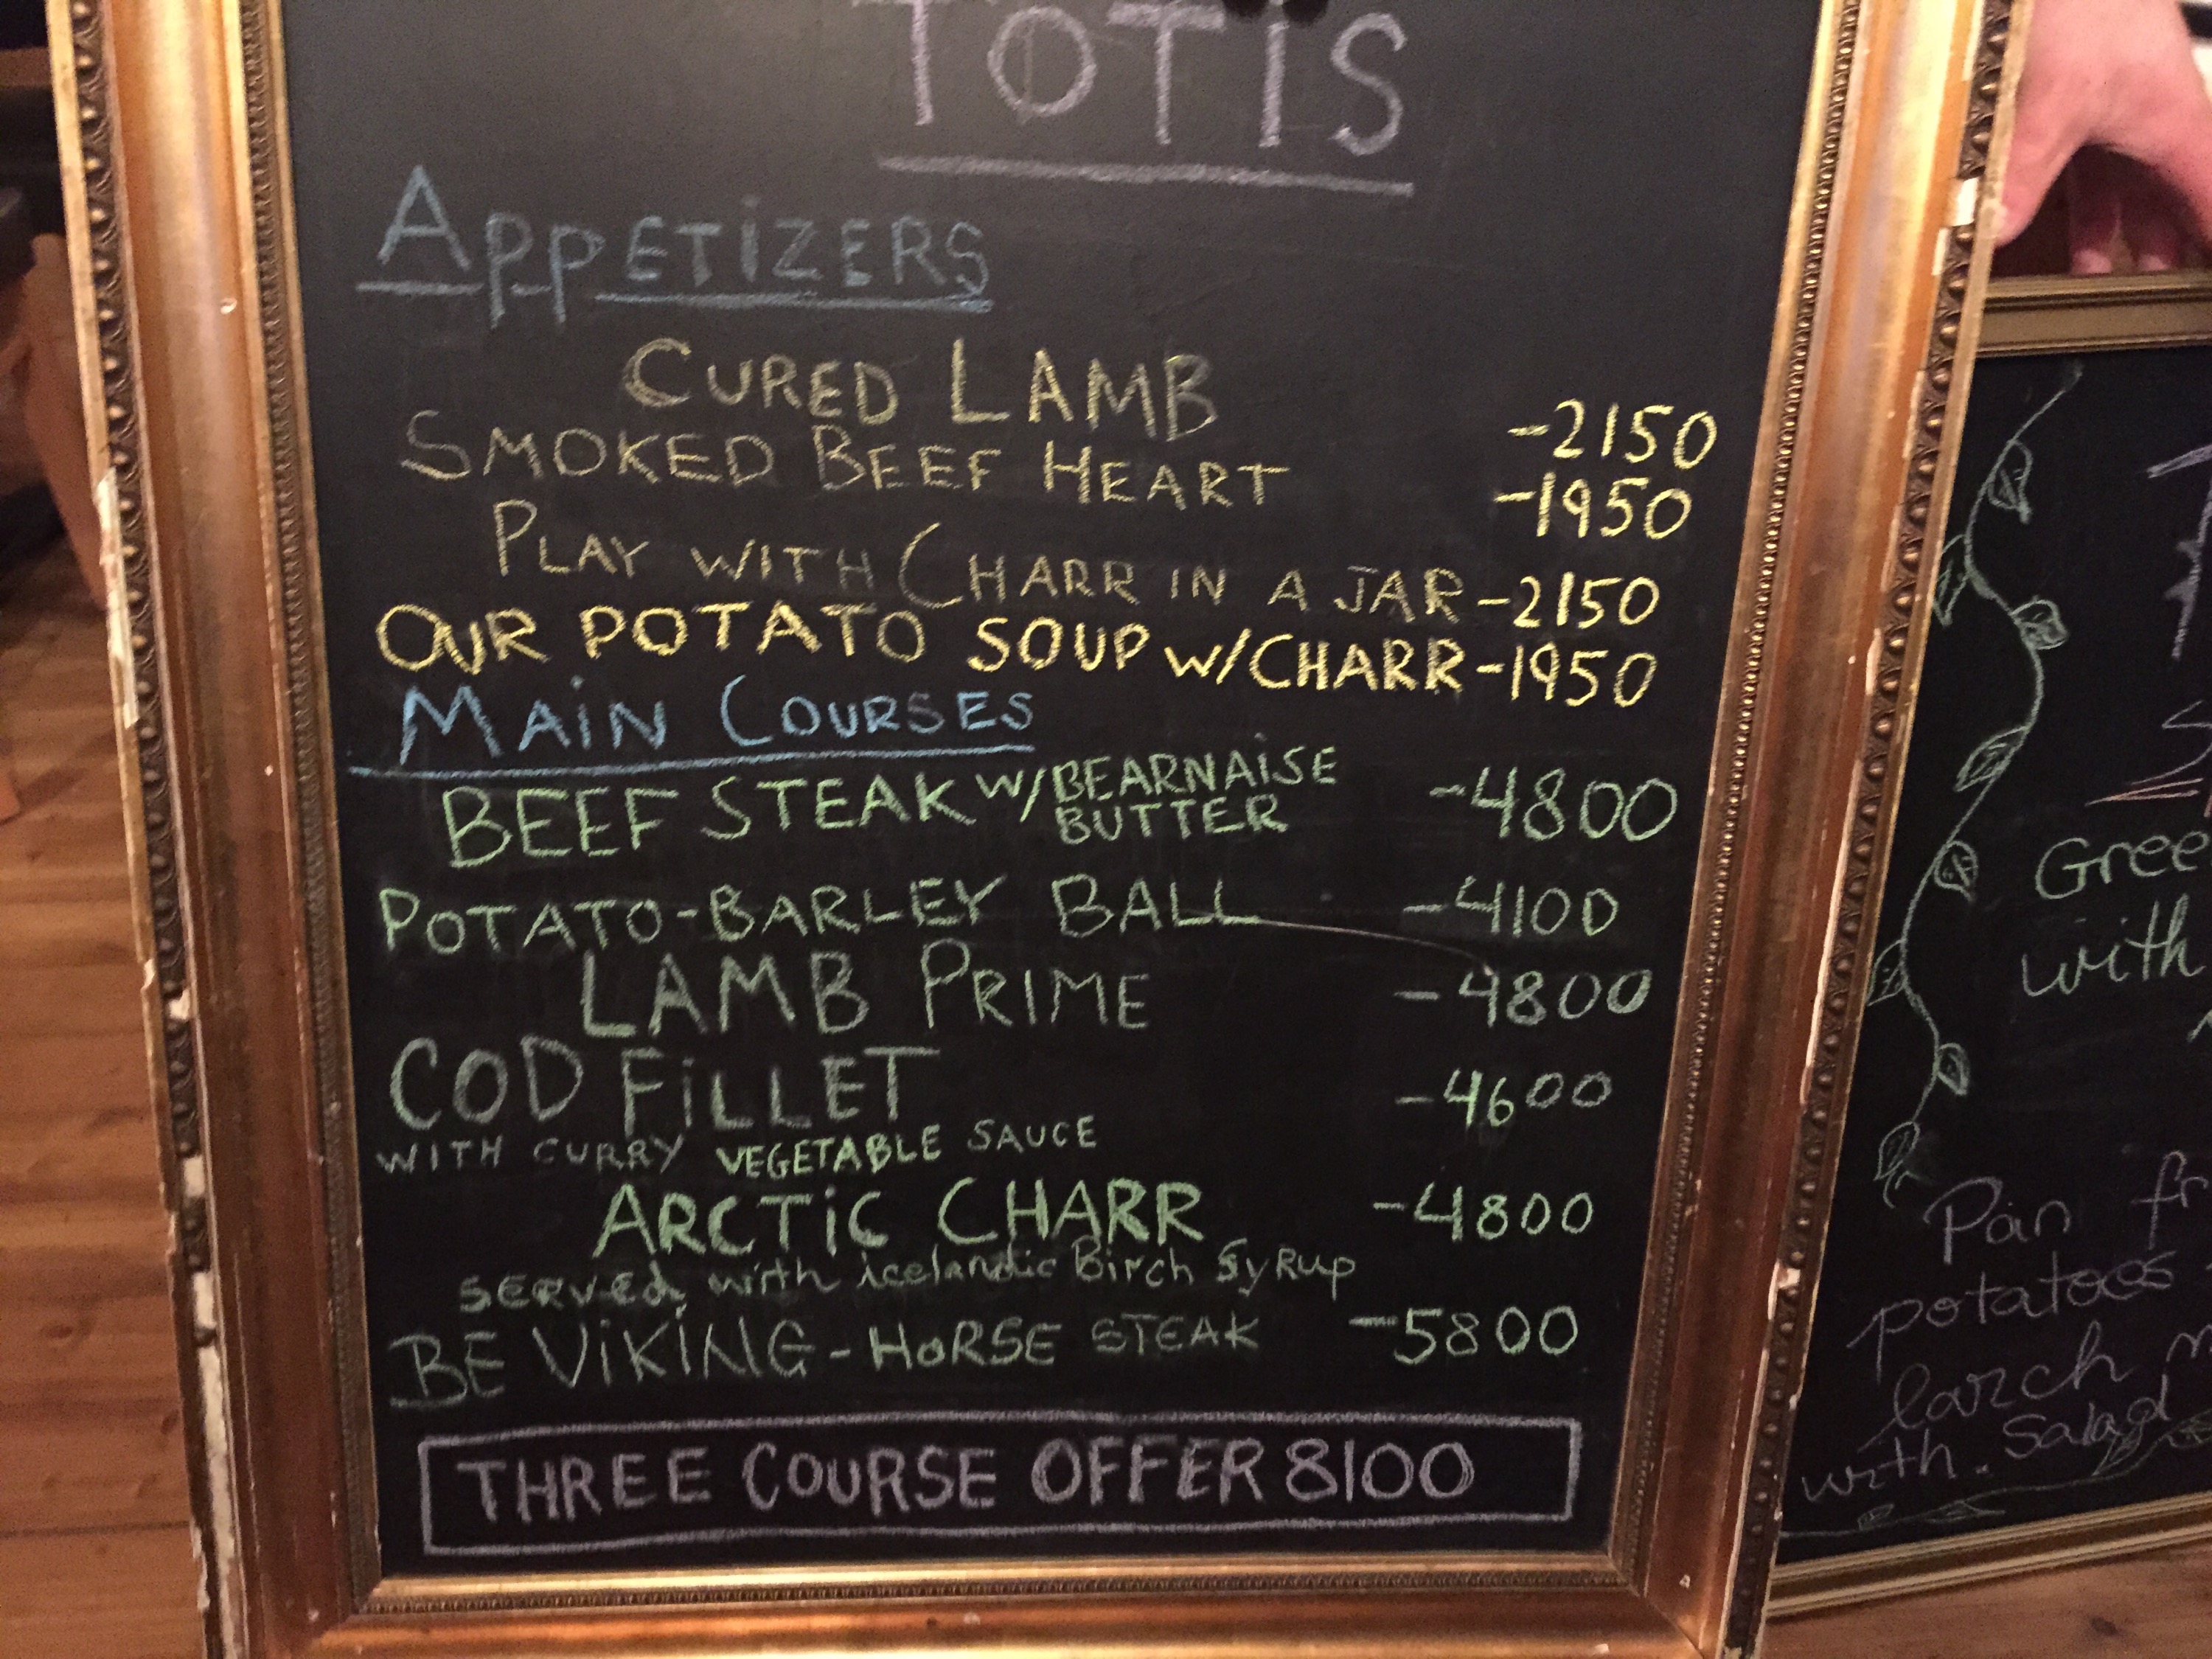 TOTIS
APPETIZERS
CURED LAMB -2150
SMOKED BEEF HEART -1950
PLAY WITH CHARR IN A JAR -2150
OUR POTATO SOUP W/CHARR -1950
MAiN COURSES
BEEF STEAK W/BEARNAiSE BUTTER -4800
POTATO-BARLEY BALL -4100
LAMB PRIME -4800
COD FiLLET -4600
WITH CURRY VEGETABLE SAUCE
ARCTiC CHARR -4800
SERVEd with icelandic Birch SyRup
BE ViKiNG - HoRSE STEAK -5800
THREE COURSE OFFER 8100
with
Pan
potatoes
larch
with salad